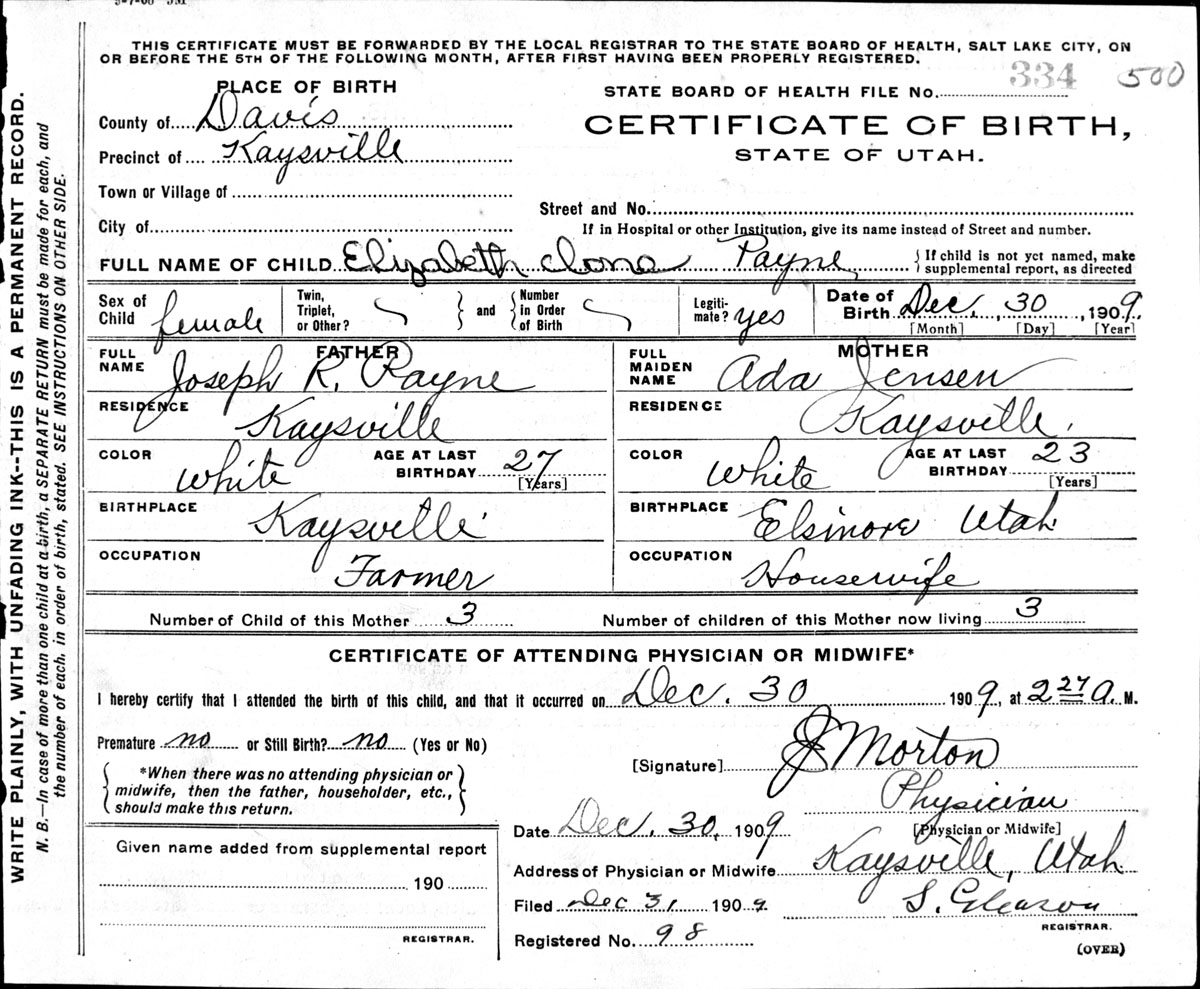 THIS CERTIFICATE MUST BE FORWARDED BY THE LOCAL REGISTRAR TO THE STATE BOARD OF HEALTH, SALT LAKE CITY, ON
OR BEFORE THE 5TH OF THE FOLLOWING MONTH, AFTER FIRST HAVING BEEN PROPERLY REGISTERED.
334 500
PLACE OF BIRTH
STATE BOARD OF HEALTH FILE No.
County of Davis
CERTIFICATE OF BIRTH,
STATE OF UTAH.
Precinct of Kaysville
Town or Village of
Street and No.
City of
If in Hospital or other Institution, give its name instead of Street and number.
FULL NAME OF CHILD Elizabeth Iona Payne
If child is not yet named, make
supplemental report, as directed
Sex of Child female
Twin, Triplet, or Other? and Number in Order of Birth
Legitimate? yes
Date of Birth Dec. 30, 1909
[Month] [Day] [Year]
FATHER
FULL NAME Joseph R. Payne
RESIDENCE Kaysville
COLOR White AGE AT LAST BIRTHDAY 27
[Years]
BIRTHPLACE Kaysville
OCCUPATION Farmer
MOTHER
FULL MAIDEN NAME Ada Jensen
RESIDENCE Kaysville,
COLOR White AGE AT LAST BIRTHDAY 23
[Years]
BIRTHPLACE Elsinore Utah
OCCUPATION Housewife
Number of Child of this Mother 3 Number of children of this Mother now living 3
CERTIFICATE OF ATTENDING PHYSICIAN OR MIDWIFE*
I hereby certify that I attended the birth of this child, and that it occurred on Dec. 30 1909, at 2 27 a. M.
Premature no or Still Birth? no (Yes or No)
*When there was no attending physician or
midwife, then the father, householder, etc.,
should make this return.
[Signature] J Morton
Physician
[Physician or Midwife]
Date Dec. 30, 1909
Address of Physician or Midwife Kaysville, Utah
Filed Dec 31, 1909 S. Gleason
REGISTRAR.
Registered No. 98
(OVER)
Given name added from supplemental report
190
REGISTRAR.
WRITE PLAINLY, WITH UNFADING INK--THIS IS A PERMANENT RECORD.
N. B.—In case of more than one child at a birth, a SEPARATE RETURN must be made for each, and
the number of each, in order of birth, stated. SEE INSTRUCTIONS ON OTHER SIDE.